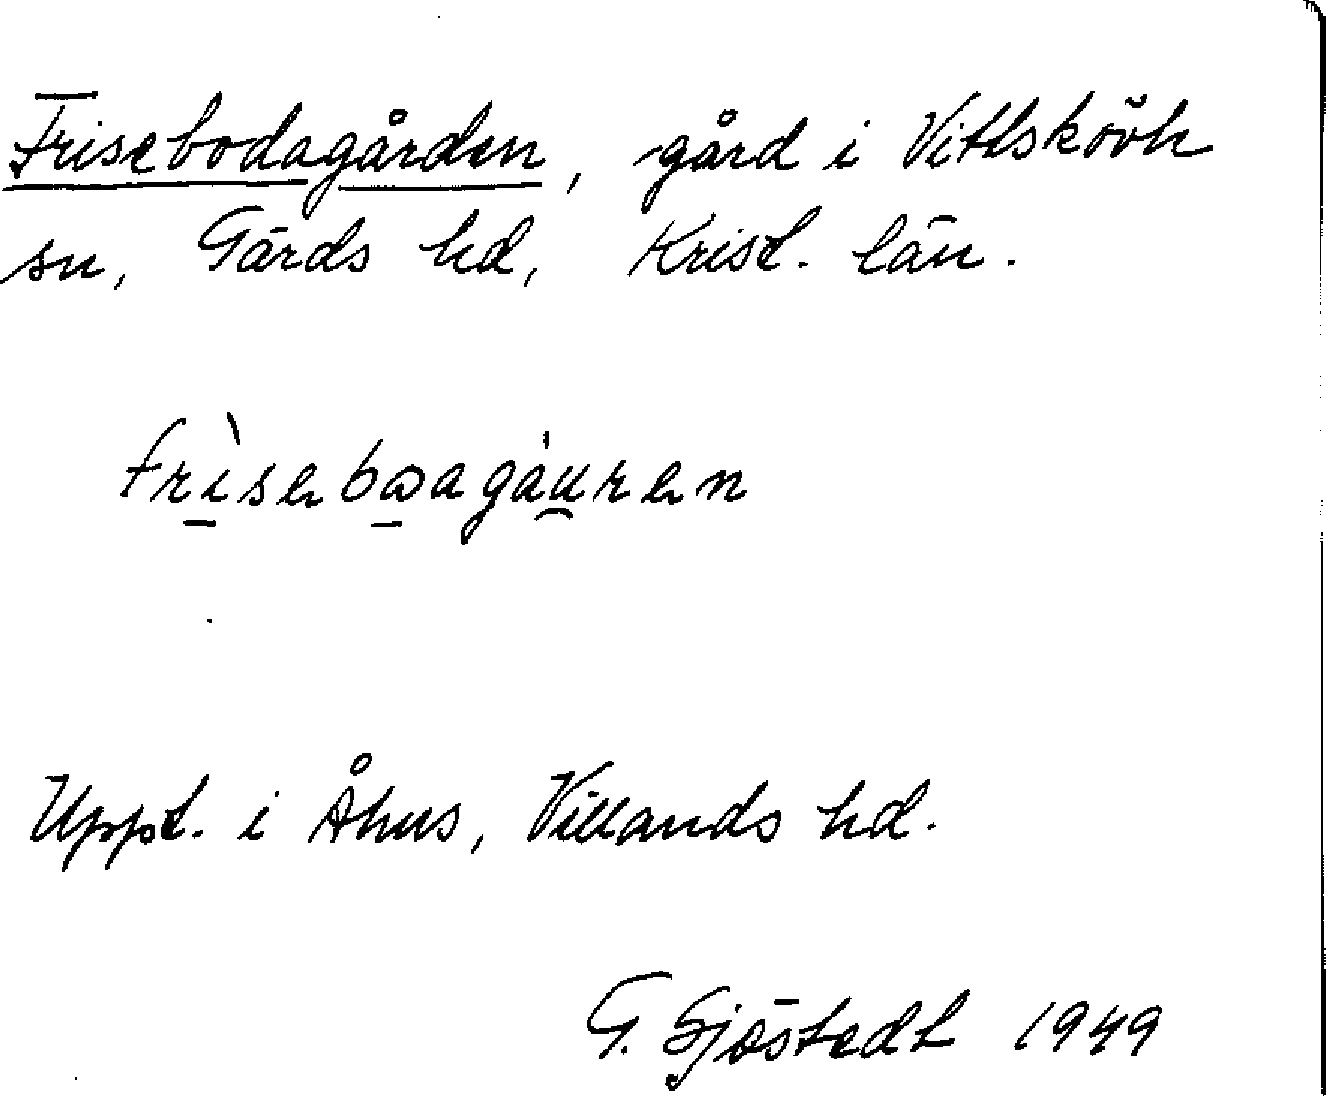 Frisebodagården, gård i Vittskövle
sn, Gärds hd, Krist. län.
Uppt. i Åhus, Villands hd.
G. Sjöstedt 1949